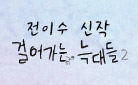 전이수 신작
걸어가는 늑대들 2